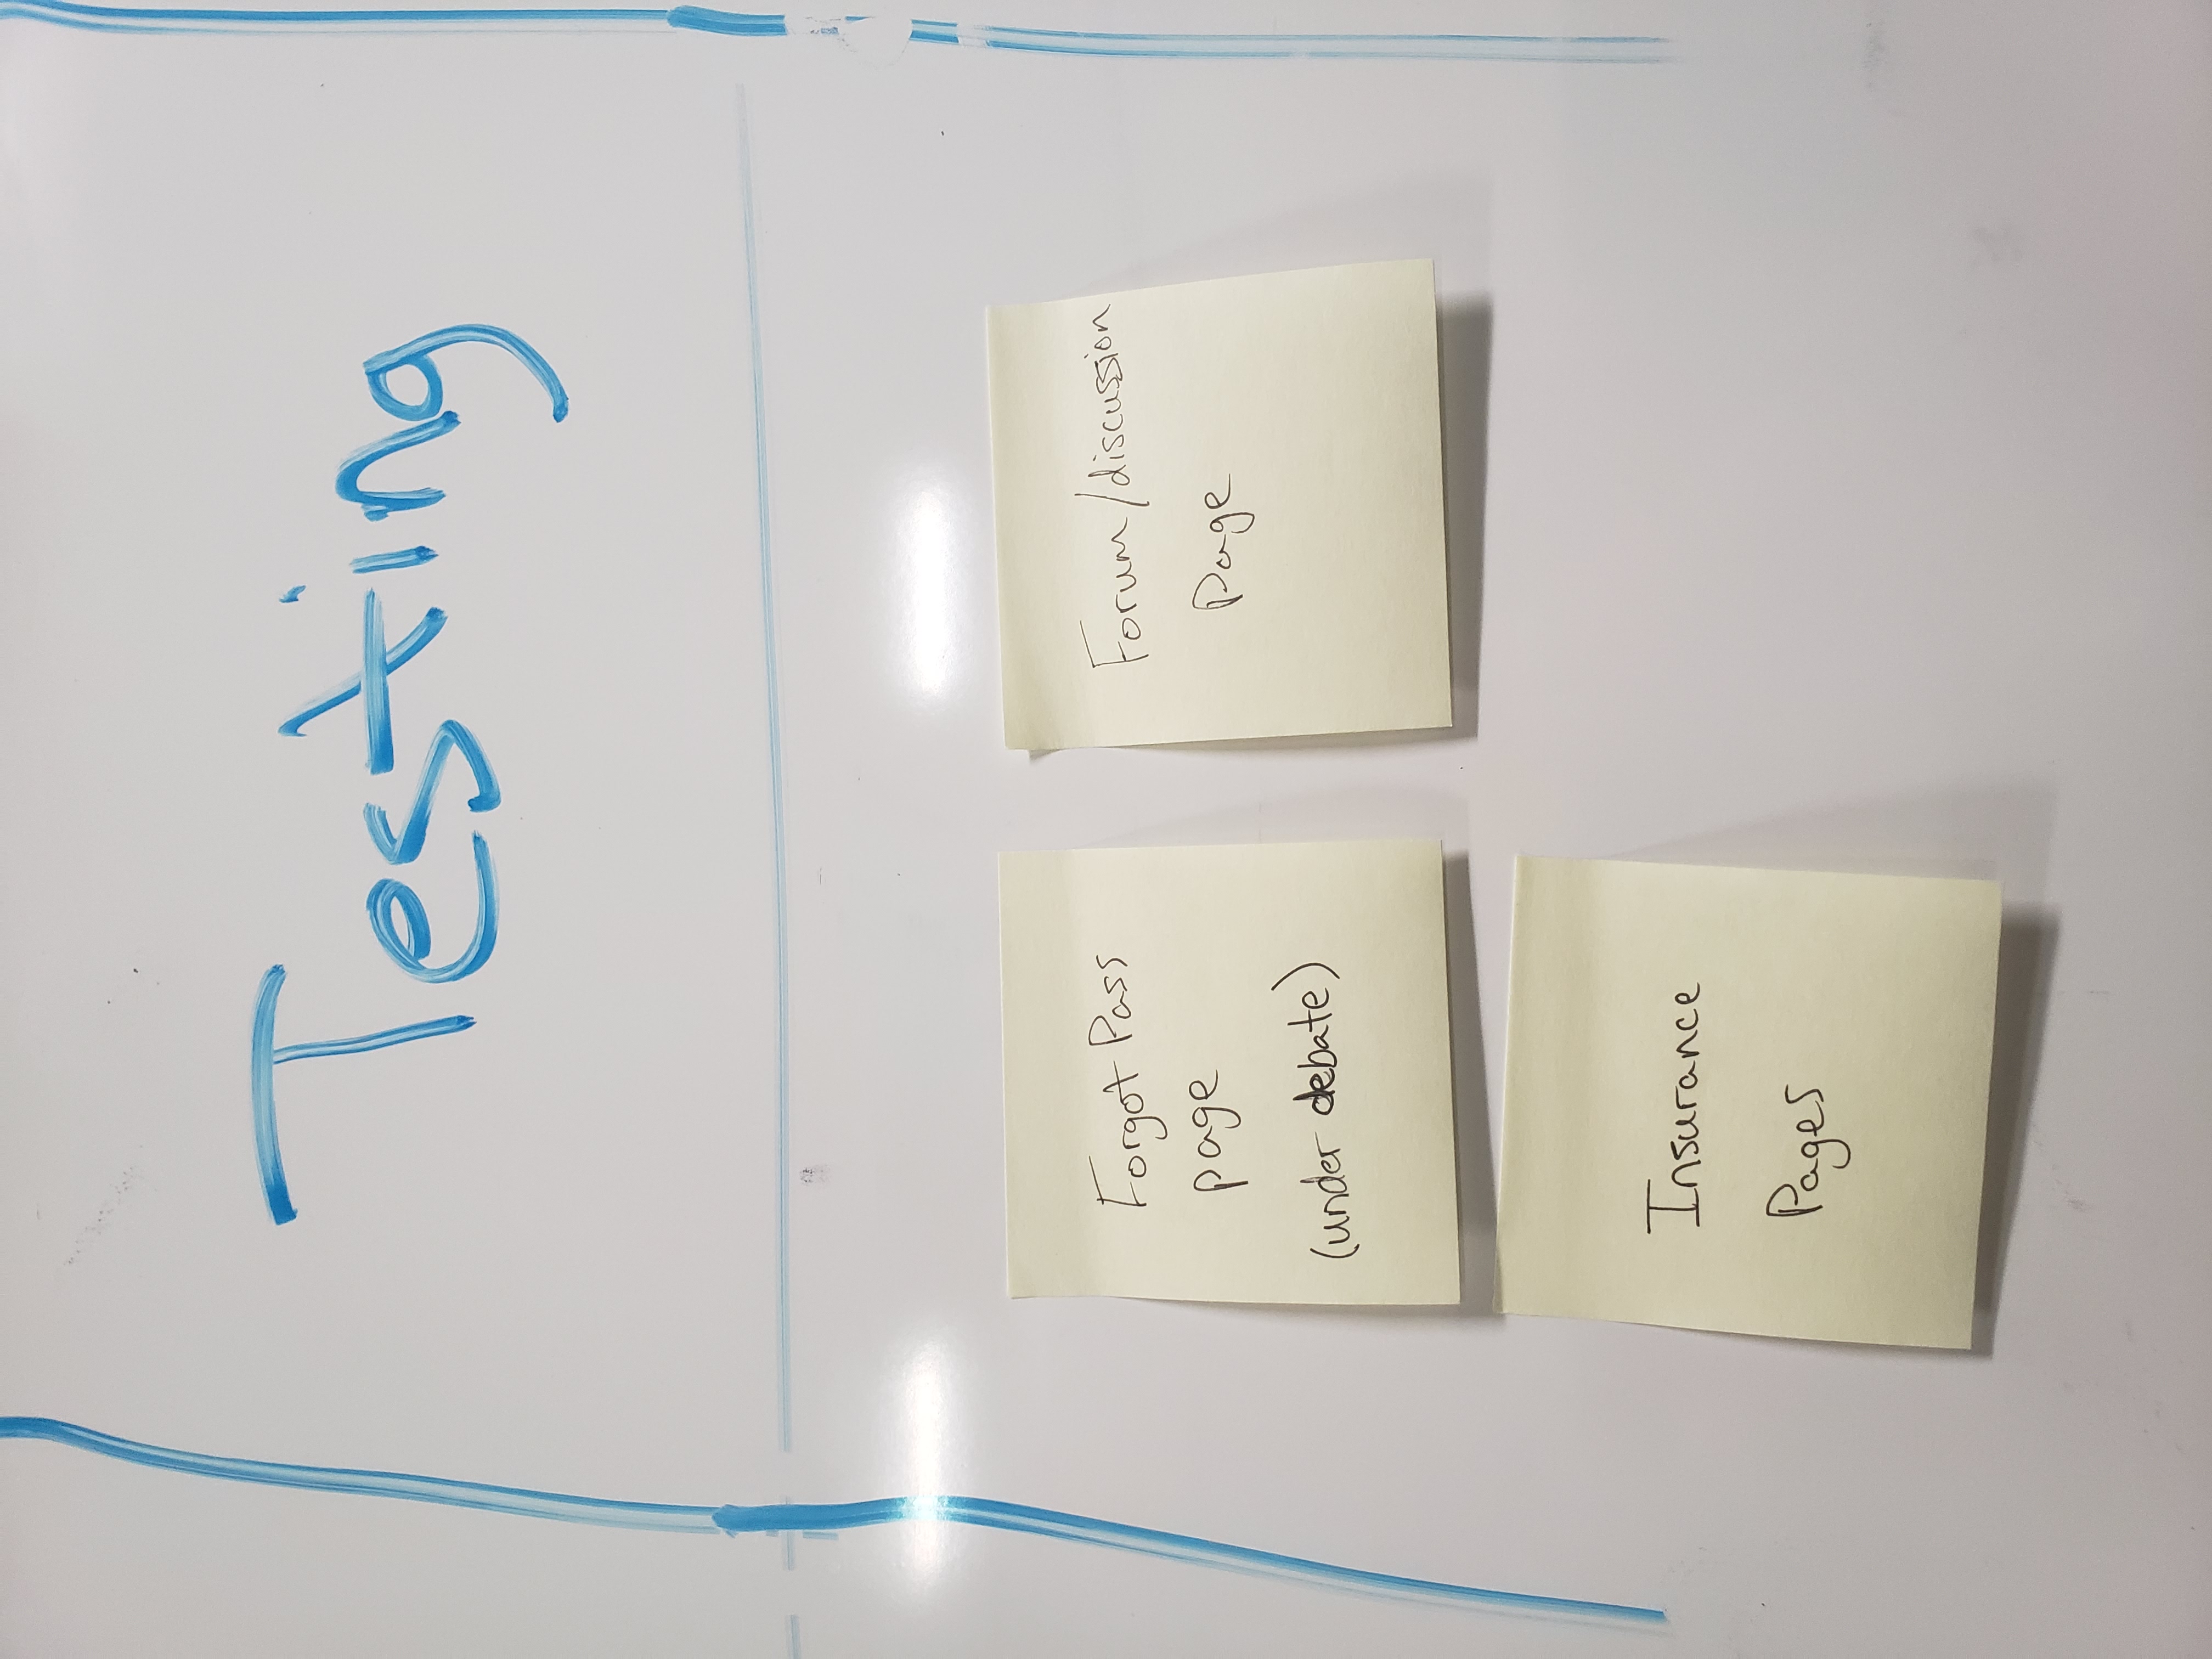 Testing
Forgot Pass
page
(under debate)
Forum/discussion
Page
Insurance
Pages